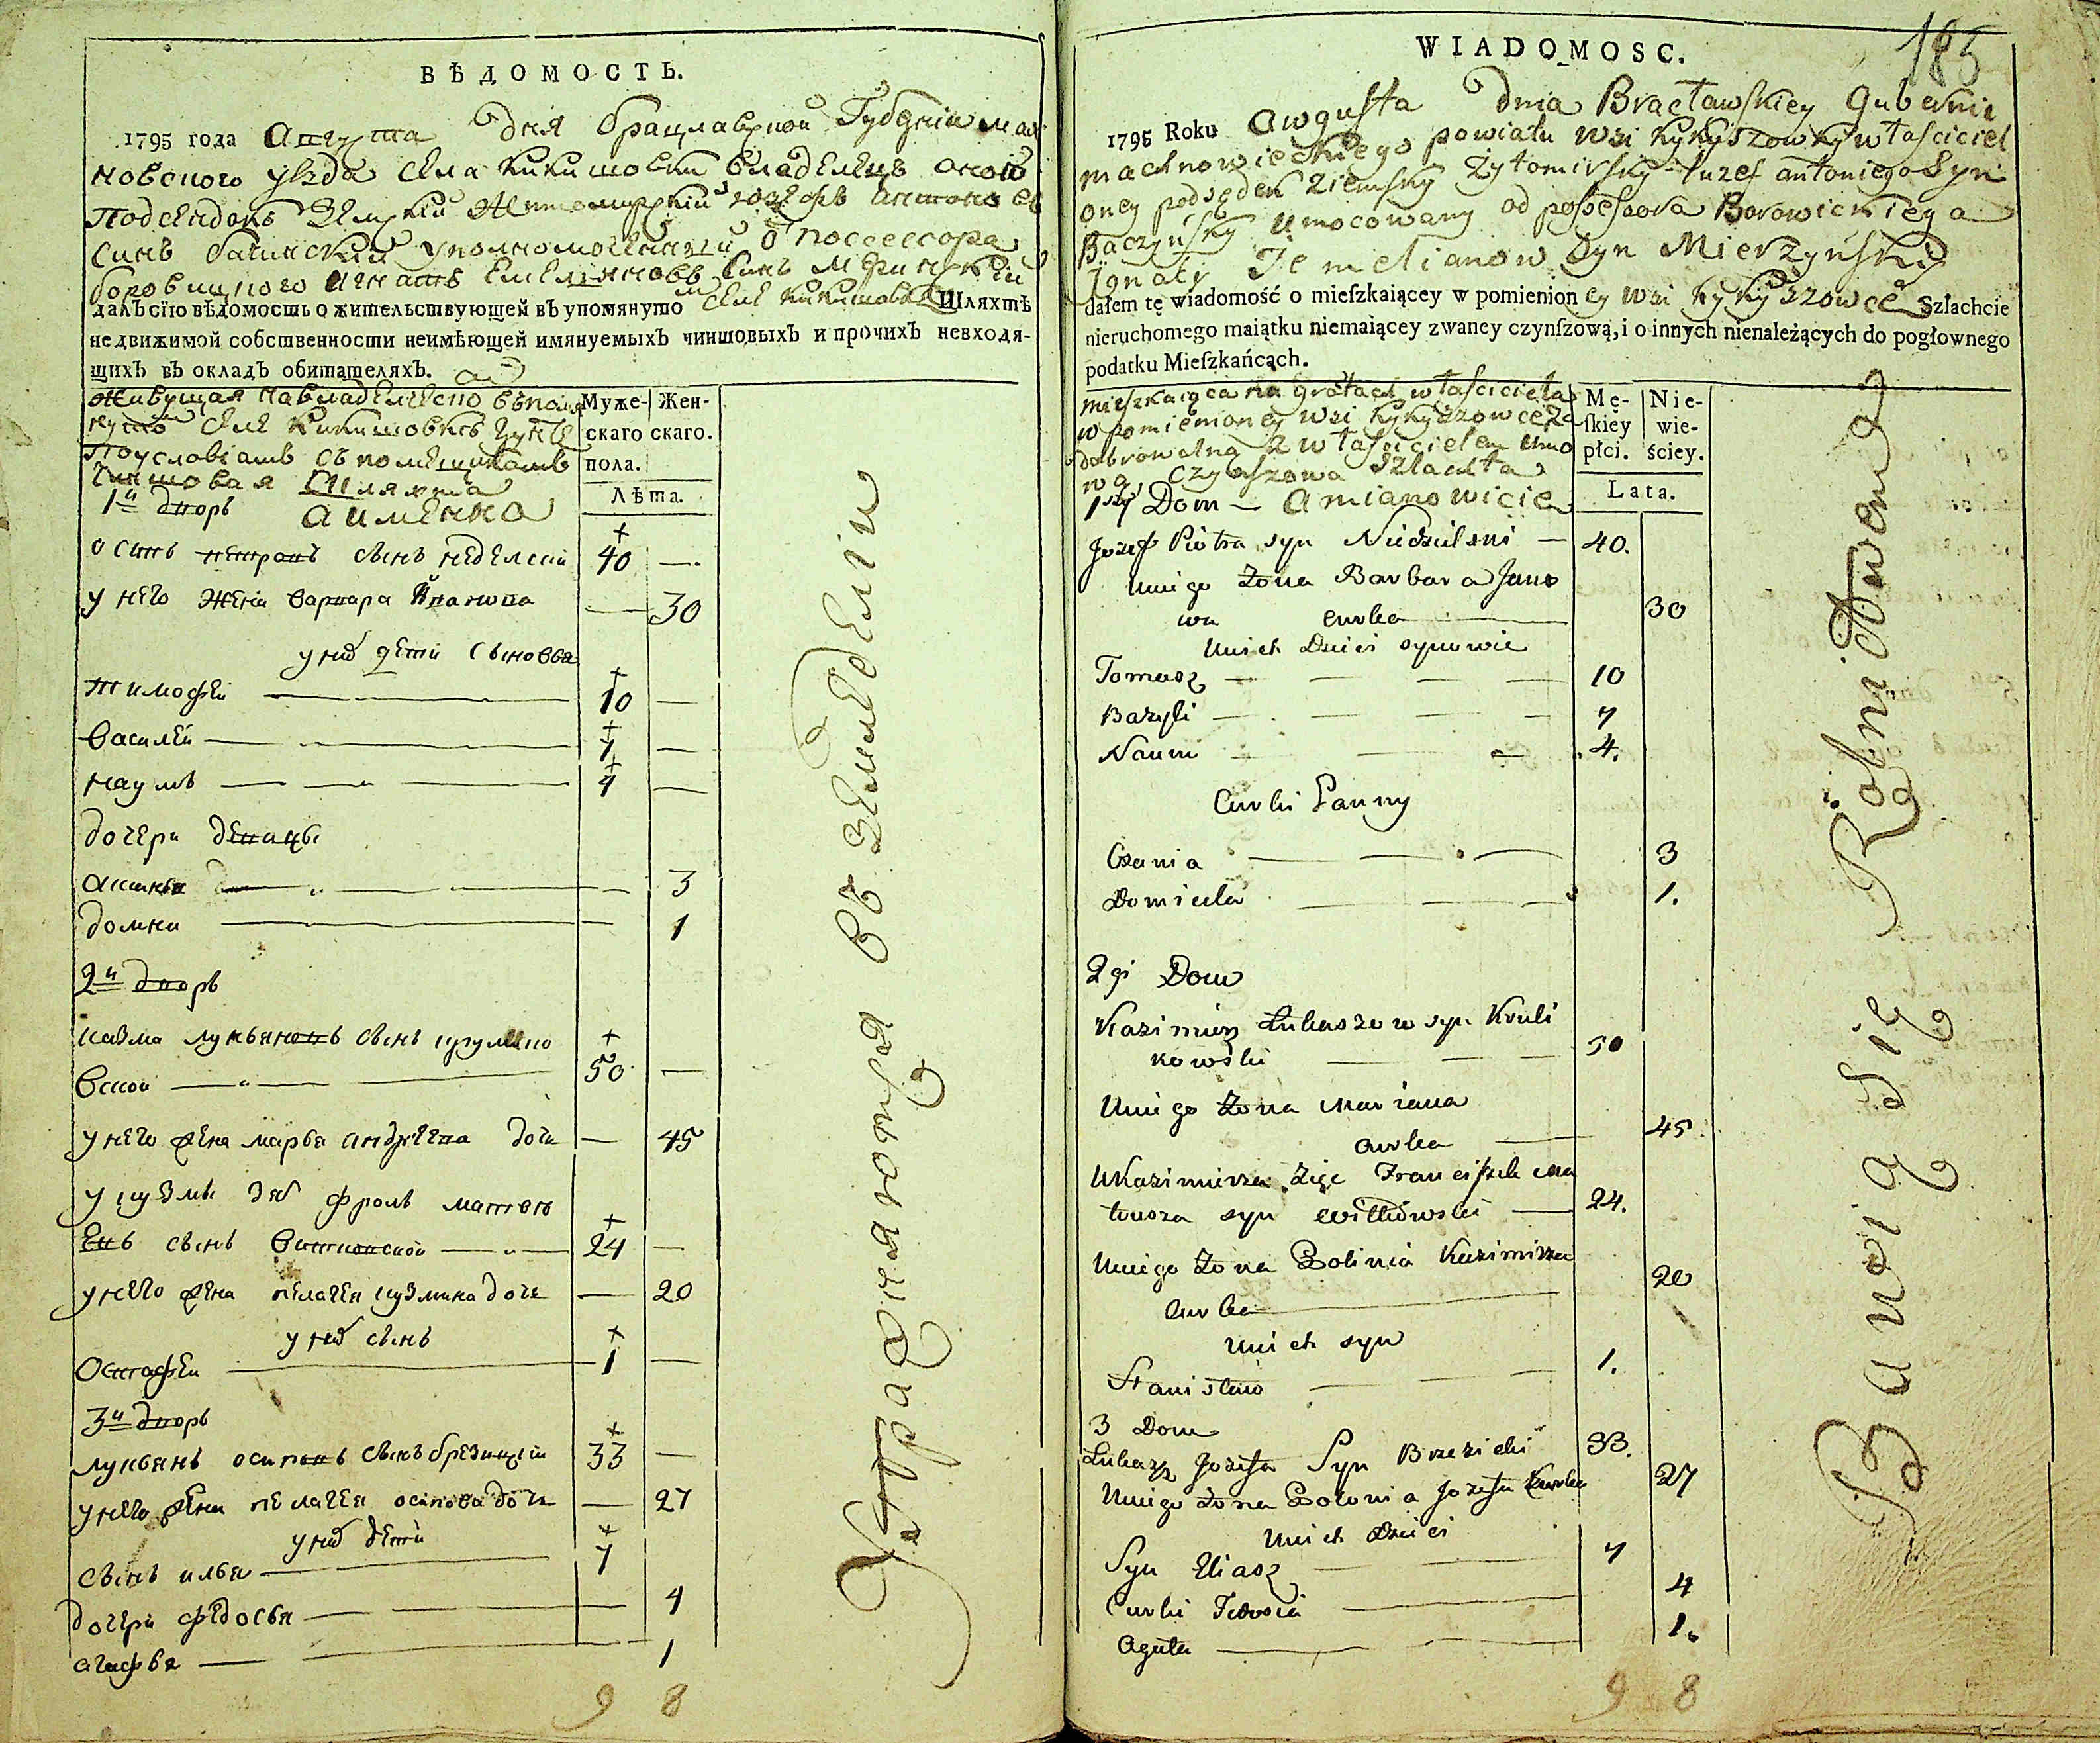 ВѢДОМОСТЬ.
1795 года августа дня брацлавской Губерніи мах
новского уѣзда села кикишовки владелецъ оной
Подсендокъ Земскій Житомирскій юзефъ антоновъ
синъ бачинский уполномоченный о поссессора
боровицкого игнатъ емелияновъ синъ мержинский
далъ сію вѣдомость о жительствующей въ упомянуто м селе кикишовке Шляхтѣ
недвижимой собственности неимѣющей имянуемыхъ чиншовыхъ и прочихъ невходя-
щихъ въ окладъ обитателяхъ.
Живущая на владелческо
селе кикишовке грунте
По условіамъ съ помещикамъ
Чиншовая Шляхта
Муже- Жен-
скаго скаго.
пола.
Лѣта.
1й дворъ а именно
осипъ петровъ сынъ неделски 40 —
у него жена варвара — 30
у нихъ дети сыновья
тимофей 10 —
василей 7 —
наумъ 4 —
дочери девицы
аксинья — 3
домна — 1
2й дворъ
козма лукьяновъ сынъ
50 —
у него жена марья андреева дочь — 45
у кузмы зять фролъ матвее
евъ сынъ витковской 24 —
у него жена пелагея кузмина дочь — 20
у нихъ сынъ
остафеи 1 —
3й дворъ
лукьянъ осиповъ сынъ брезицкій 33 —
у него жена пелагея осипова дочь — 27
у нихъ дети
сынъ илья 7
дочери федосья 4
агафья 1
9 8
упражняются въ земледелии
185
WIADOMOSC.
1795 Roku awgusta dnia Bracławskiey Gubernie
machnowieckiego powiatu wsi kykyszowky własciciel
oney podsędek ziemsky żytomirsky Iuzef antoniego Syn
Baczyńsky umocowany od possesora Borowickiega
Ignaty Jemelianow Syn Mierzyńsky
dałem tę wiadomość o mieſzkaiącey w pomienion ey wsi kykyszowce Szlachcie
nieruchomego maiątku niemaiącey zwaney czynſzową, i o innych nienależących do pogłownego
podatku Mieſzkańcach.
mieszkaiąca na Grątach własciciela
w pomienioney wsi kykyszowce za
dobrowolną z własicielem umo
wą czynszowa Szlachta
Mę- Nie-
ſkiey wie-
płci. ściey.
Lata.
1szy Dom — amianowicie
Jozef Piotra syn Niedzielski — 40.
Uniego żona Barbara Jano
wa curka 30
Unich Dzieci synowie
Tomasz 10
Bazyli 7
Naum 4.
Curki Panny
Czenia 3
Domicela 1.
2gi Dom
Kazimierz Łukaszow syn Kruli
kowski 50
Uniego żona Mariana
curka 45
U Kazimierza Zięc Franciszek Ma
teusza syn Witkowski 24.
Uniego żona Polinia Kazimirza
Curka 20
Unich syn
Stanisław 1.
3 Dom
Łukasz Jozefa Syn Brzezicki 33.
Uniego żona Polonia Jozefa Curka 27
Unich Dzieci
Syn Eliasz 7
Curki Tedosia 4
Agata 1.
9 8
Bawią się Rolnictwem